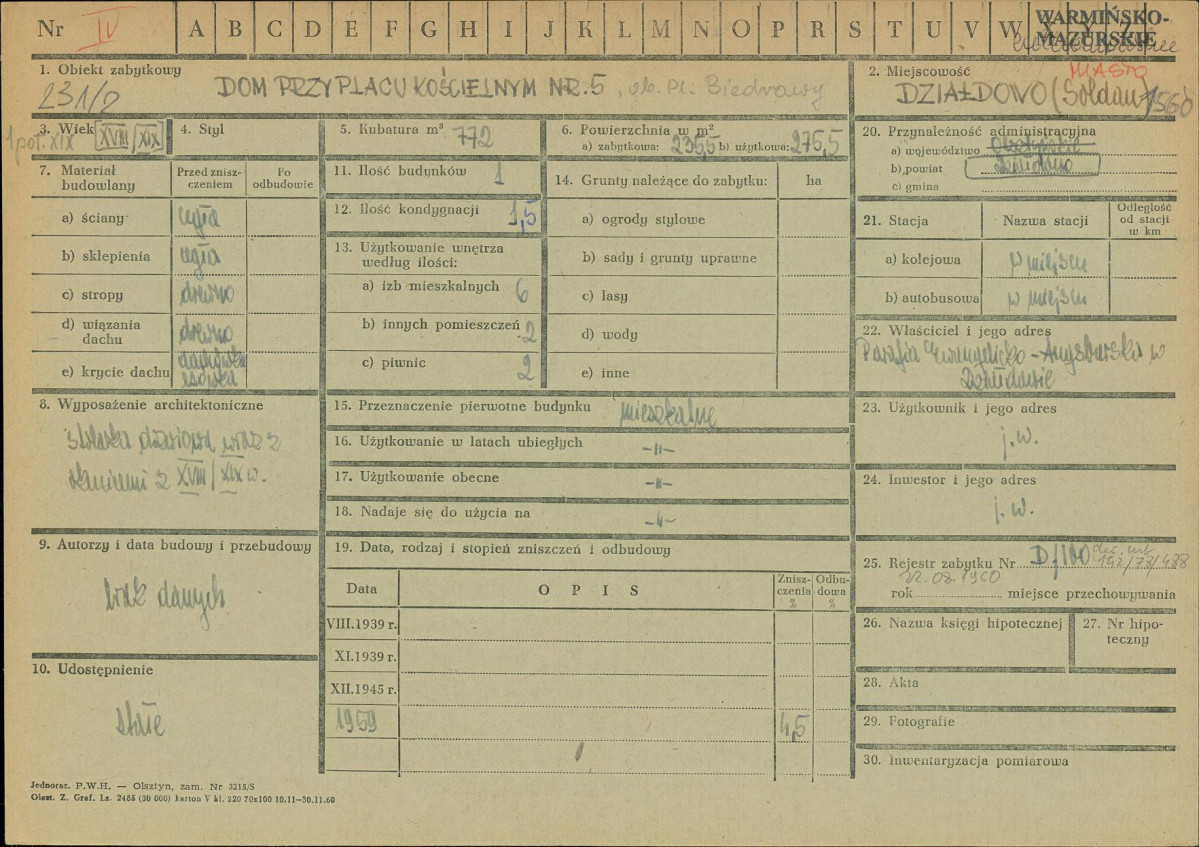 Nr IV A B C D E F G H I J K L M N O P R S T U V W X Y Z WARMIŃSKO-MAZURSKIE
1. Obiekt zabytkowy
231/2 DOM PRZY PLACU KOŚCIELNYM NR. 5, ob. Pl. Biedrawy
2. Miejscowość MIASTO
DZIAŁDOWO (Soldau)
3. Wiek XVIII/XIX
1 poł. XIX
4. Styl
5. Kubatura m³ 772
6. Powierzchnia w m²
a) zabytkowa: 235,5 b) użytkowa: 275,5
7. Materiał budowlany
Przed zniszczeniem
Po odbudowie
a) ściany cegła
b) sklepienia cegła
c) stropy drewno
d) wiązania dachu drewno
e) krycie dachu dachówka esówka
8. Wyposażenie architektoniczne
stolarka drzwiowa wraz z
okuciami z XVIII/XIX w.
9. Autorzy i data budowy i przebudowy
brak danych
10. Udostępnienie
stałe
11. Ilość budynków 1
12. Ilość kondygnacji 1,5
13. Użytkowanie wnętrza według ilości:
a) izb mieszkalnych 6
b) innych pomieszczeń 2
c) piwnic 2
14. Grunty należące do zabytku: ha
a) ogrody stylowe
b) sady i grunty uprawne
c) lasy
d) wody
e) inne
15. Przeznaczenie pierwotne budynku mieszkalne
16. Użytkowanie w latach ubiegłych -"-
17. Użytkowanie obecne -"-
18. Nadaje się do użycia na -"-
19. Data, rodzaj i stopień zniszczeń i odbudowy
Data OPIS Zniszczenia % Odbudowa %
VIII.1939 r.
XI.1939 r.
XII.1945 r.
1959 4,5
20. Przynależność administracyjna
a) województwo Olsztyńskie
b) powiat Działdowo
c) gmina
21. Stacja Nazwa stacji Odległość od stacji w km
a) kolejowa w miejscu
b) autobusowa w miejscu
22. Właściciel i jego adres
Parafia Ewangelicko-Augsburska w
Działdowie
23. Użytkownik i jego adres
j.w.
24. Inwestor i jego adres
j.w.
25. Rejestr zabytku Nr D/100
22.08.1960
rok miejsce przechowywania
26. Nazwa księgi hipotecznej
27. Nr hipoteczny
28. Akta
29. Fotografie
30. Inwentaryzacja pomiarowa
Jednoraz. P.W.H. — Olsztyn, zam. Nr 3215/S
Olszt. Z. Graf. Lz. 2485 (30 000) karton V kl. 220 70x100 10.11—30.11.60